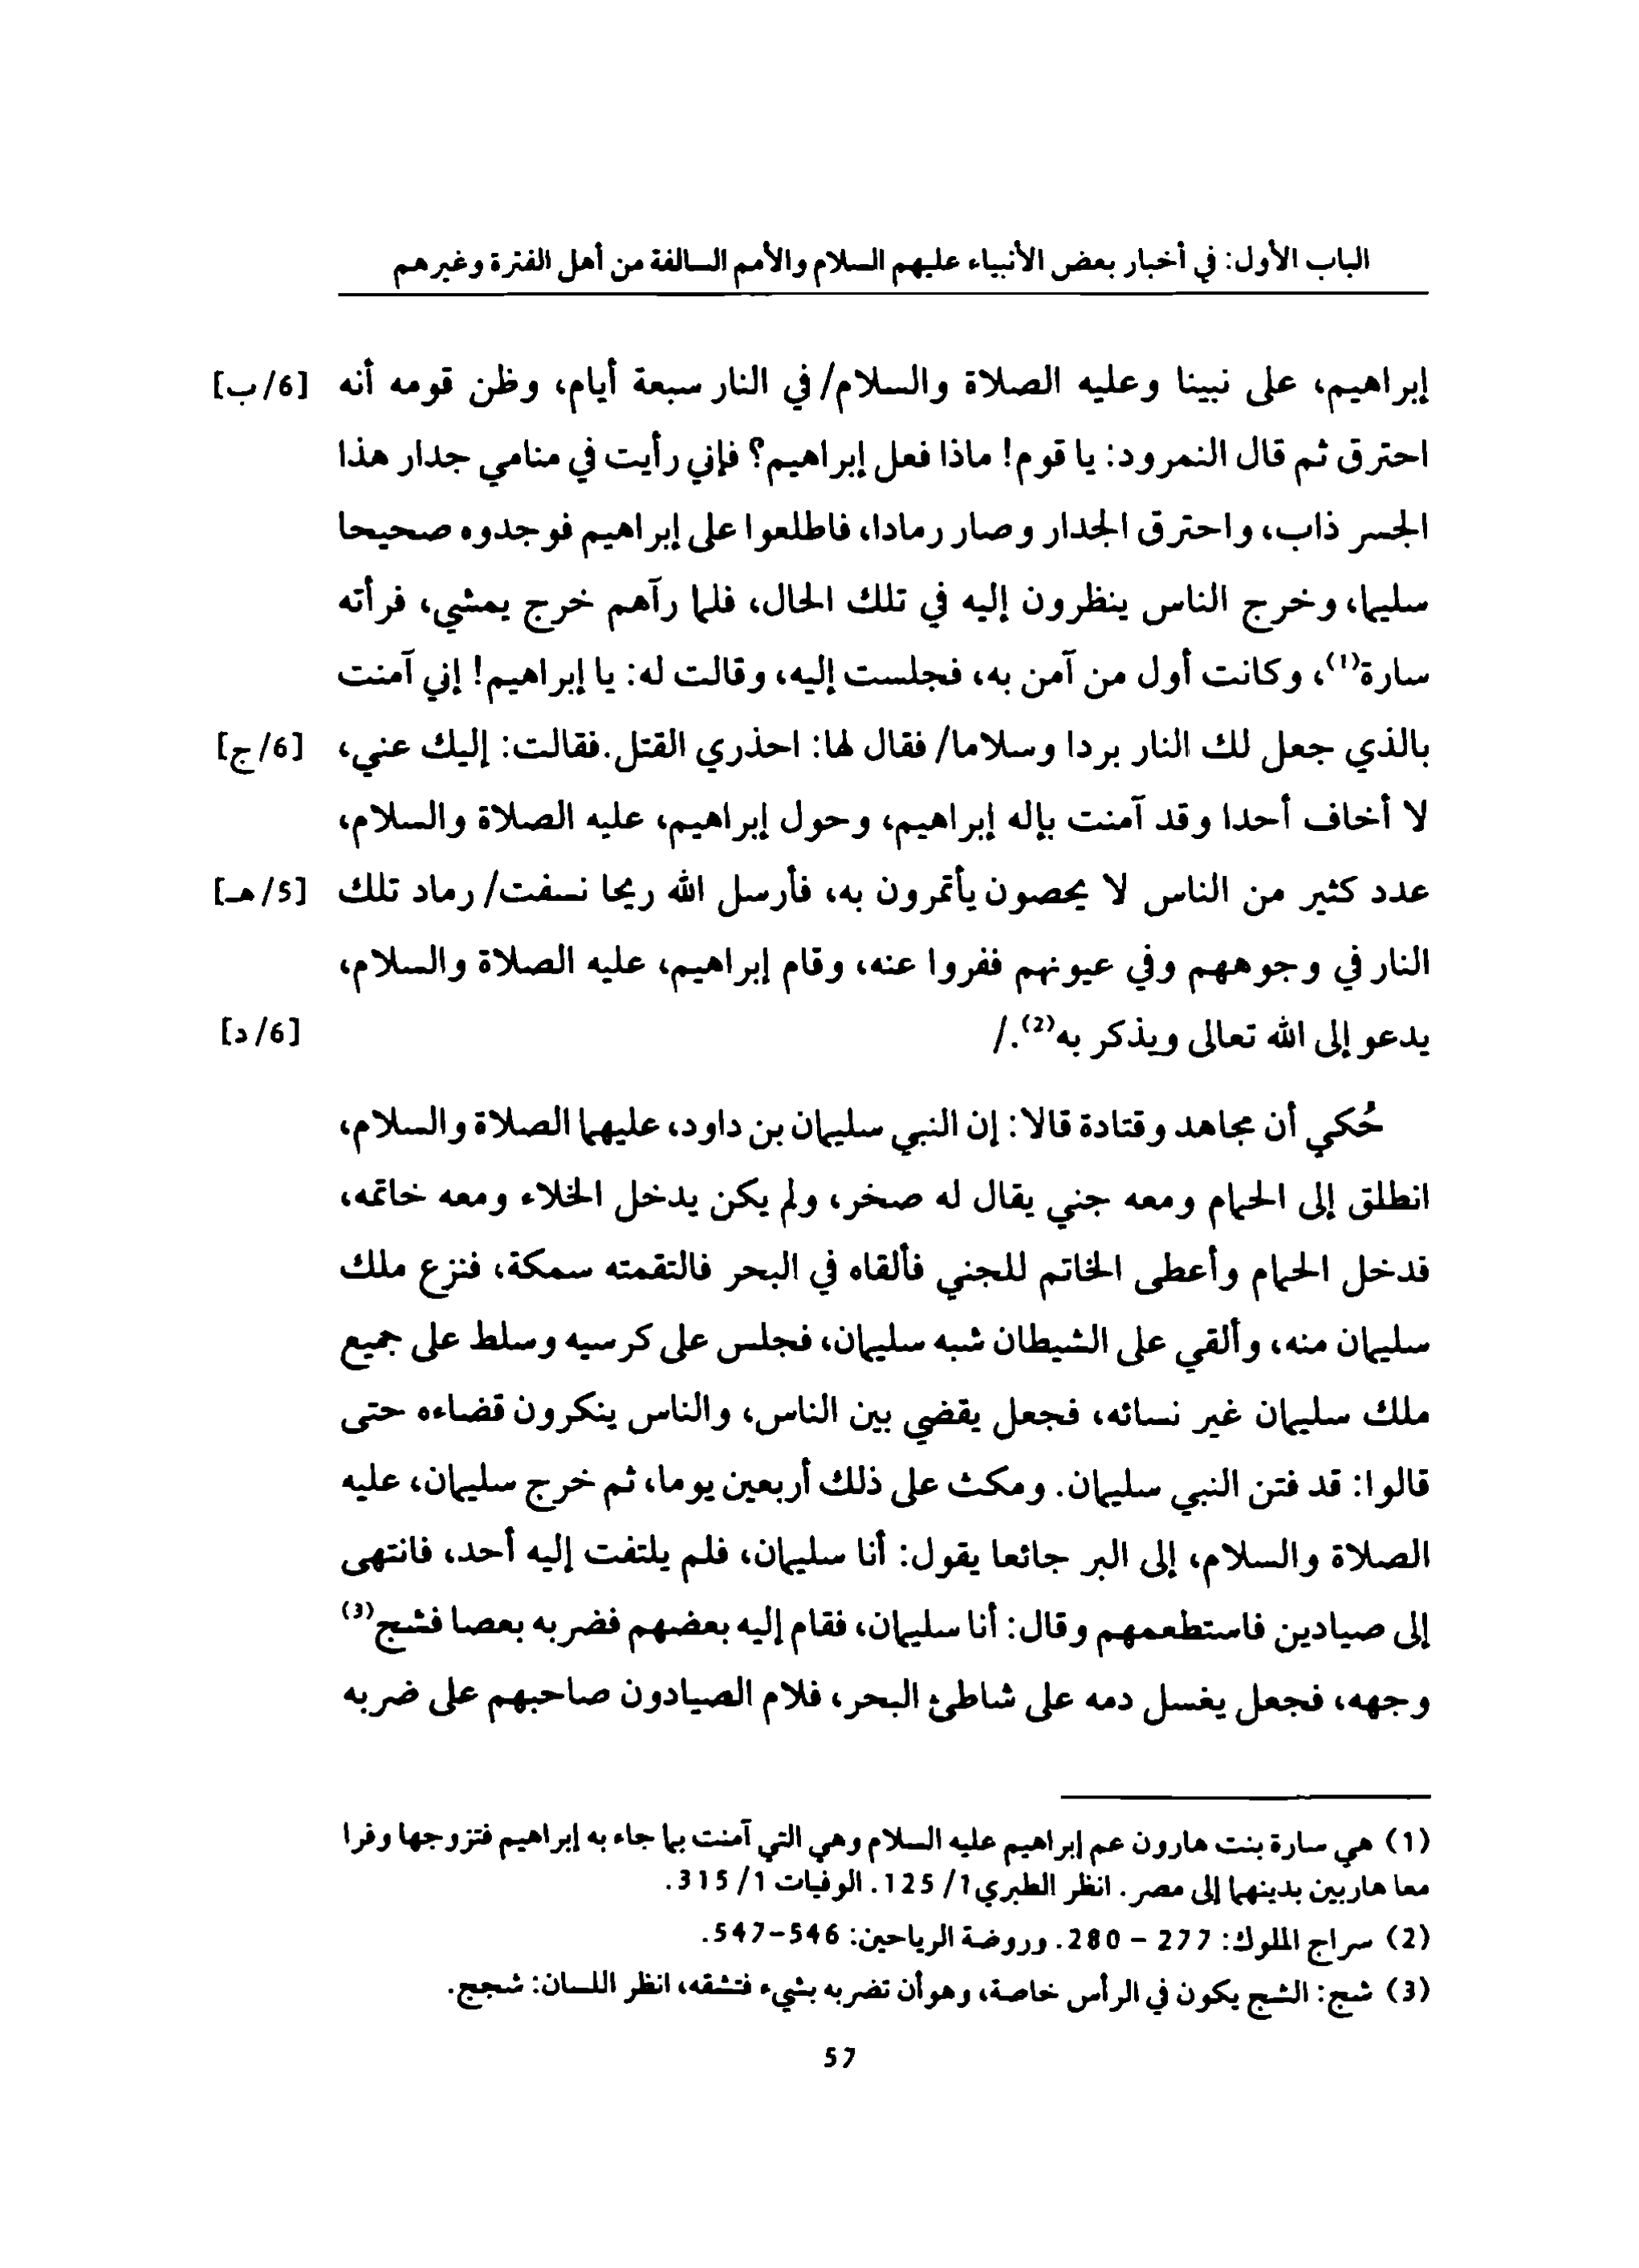 الباب الأول: في أخبار بعض الأنبياء عليهم السلام والأمم السالفة من أهل الفترة وغيرهم
إبراهيم، على نبينا وعليه الصلاة والسلام/ في النار سبعة أيام، وظن قومه أنه [6/ب]
احترق ثم قال النمرود: يا قوم! ماذا فعل إبراهيم؟ فإني رأيت في منامي جدار هذا
الجسر ذاب، واحترق الجدار وصار رمادا، فاطلعوا على إبراهيم فوجدوه صحيحا
سليما، وخرج الناس ينظرون إليه في تلك الحال، فلما رآهم خرج يمشي، فرأته
سارة(1)، وكانت أول من آمن به، فجلست إليه، وقالت له: يا إبراهيم! إني آمنت
بالذي جعل لك النار بردا وسلاما/ فقال لها: احذري القتل.فقالت: إليك عني، [6/ج]
لا أخاف أحدا وقد آمنت بإله إبراهيم، وحول إبراهيم، عليه الصلاة والسلام،
عدد كثير من الناس لا يحصون يأتمرون به، فأرسل الله ريحا نسفت/ رماد تلك [5/هـ]
النار في وجوههم وفي عيونهم ففروا عنه، وقام إبراهيم، عليه الصلاة والسلام،
يدعو إلى الله تعالى ويذكر به(2)./ [6/د]
حُكي أن مجاهد وقتادة قالا: إن النبي سليمان بن داود، عليهما الصلاة والسلام،
انطلق إلى الحمام ومعه جني يقال له صخر، ولم يكن يدخل الخلاء ومعه خاتمه،
فدخل الحمام وأعطى الخاتم للجني فألقاه في البحر فالتقمته سمكة، فنزع ملك
سليمان منه، وألقي على الشيطان شبه سليمان، فجلس على كرسيه وسلط على جميع
ملك سليمان غير نسائه، فجعل يقضي بين الناس، والناس ينكرون قضاءه حتى
قالوا: قد فتن النبي سليمان. ومكث على ذلك أربعين يوما، ثم خرج سليمان، عليه
الصلاة والسلام، إلى البر جائعا يقول: أنا سليمان، فلم يلتفت إليه أحد، فانتهى
إلى صيادين فاستطعمهم وقال: أنا سليمان، فقام إليه بعضهم فضربه بعصا فشج(3)
وجهه، فجعل يغسل دمه على شاطئ البحر، فلام الصيادون صاحبهم على ضربه
(1) هي سارة بنت هارون عم إبراهيم عليه السلام وهي التي آمنت بما جاء به إبراهيم فتزوجها وفرا
معا هاربين بدينهما إلى مصر. انظر الطبري1/ 125. الوفيات 1/ 315.
(2) سراج الملوك: 277 - 280. وروضة الرياحين: 546-547.
(3) شج: الشج يكون في الرأس خاصة، وهوأن تضربه بشيء فتشقه، انظر اللسان: شجج.
57